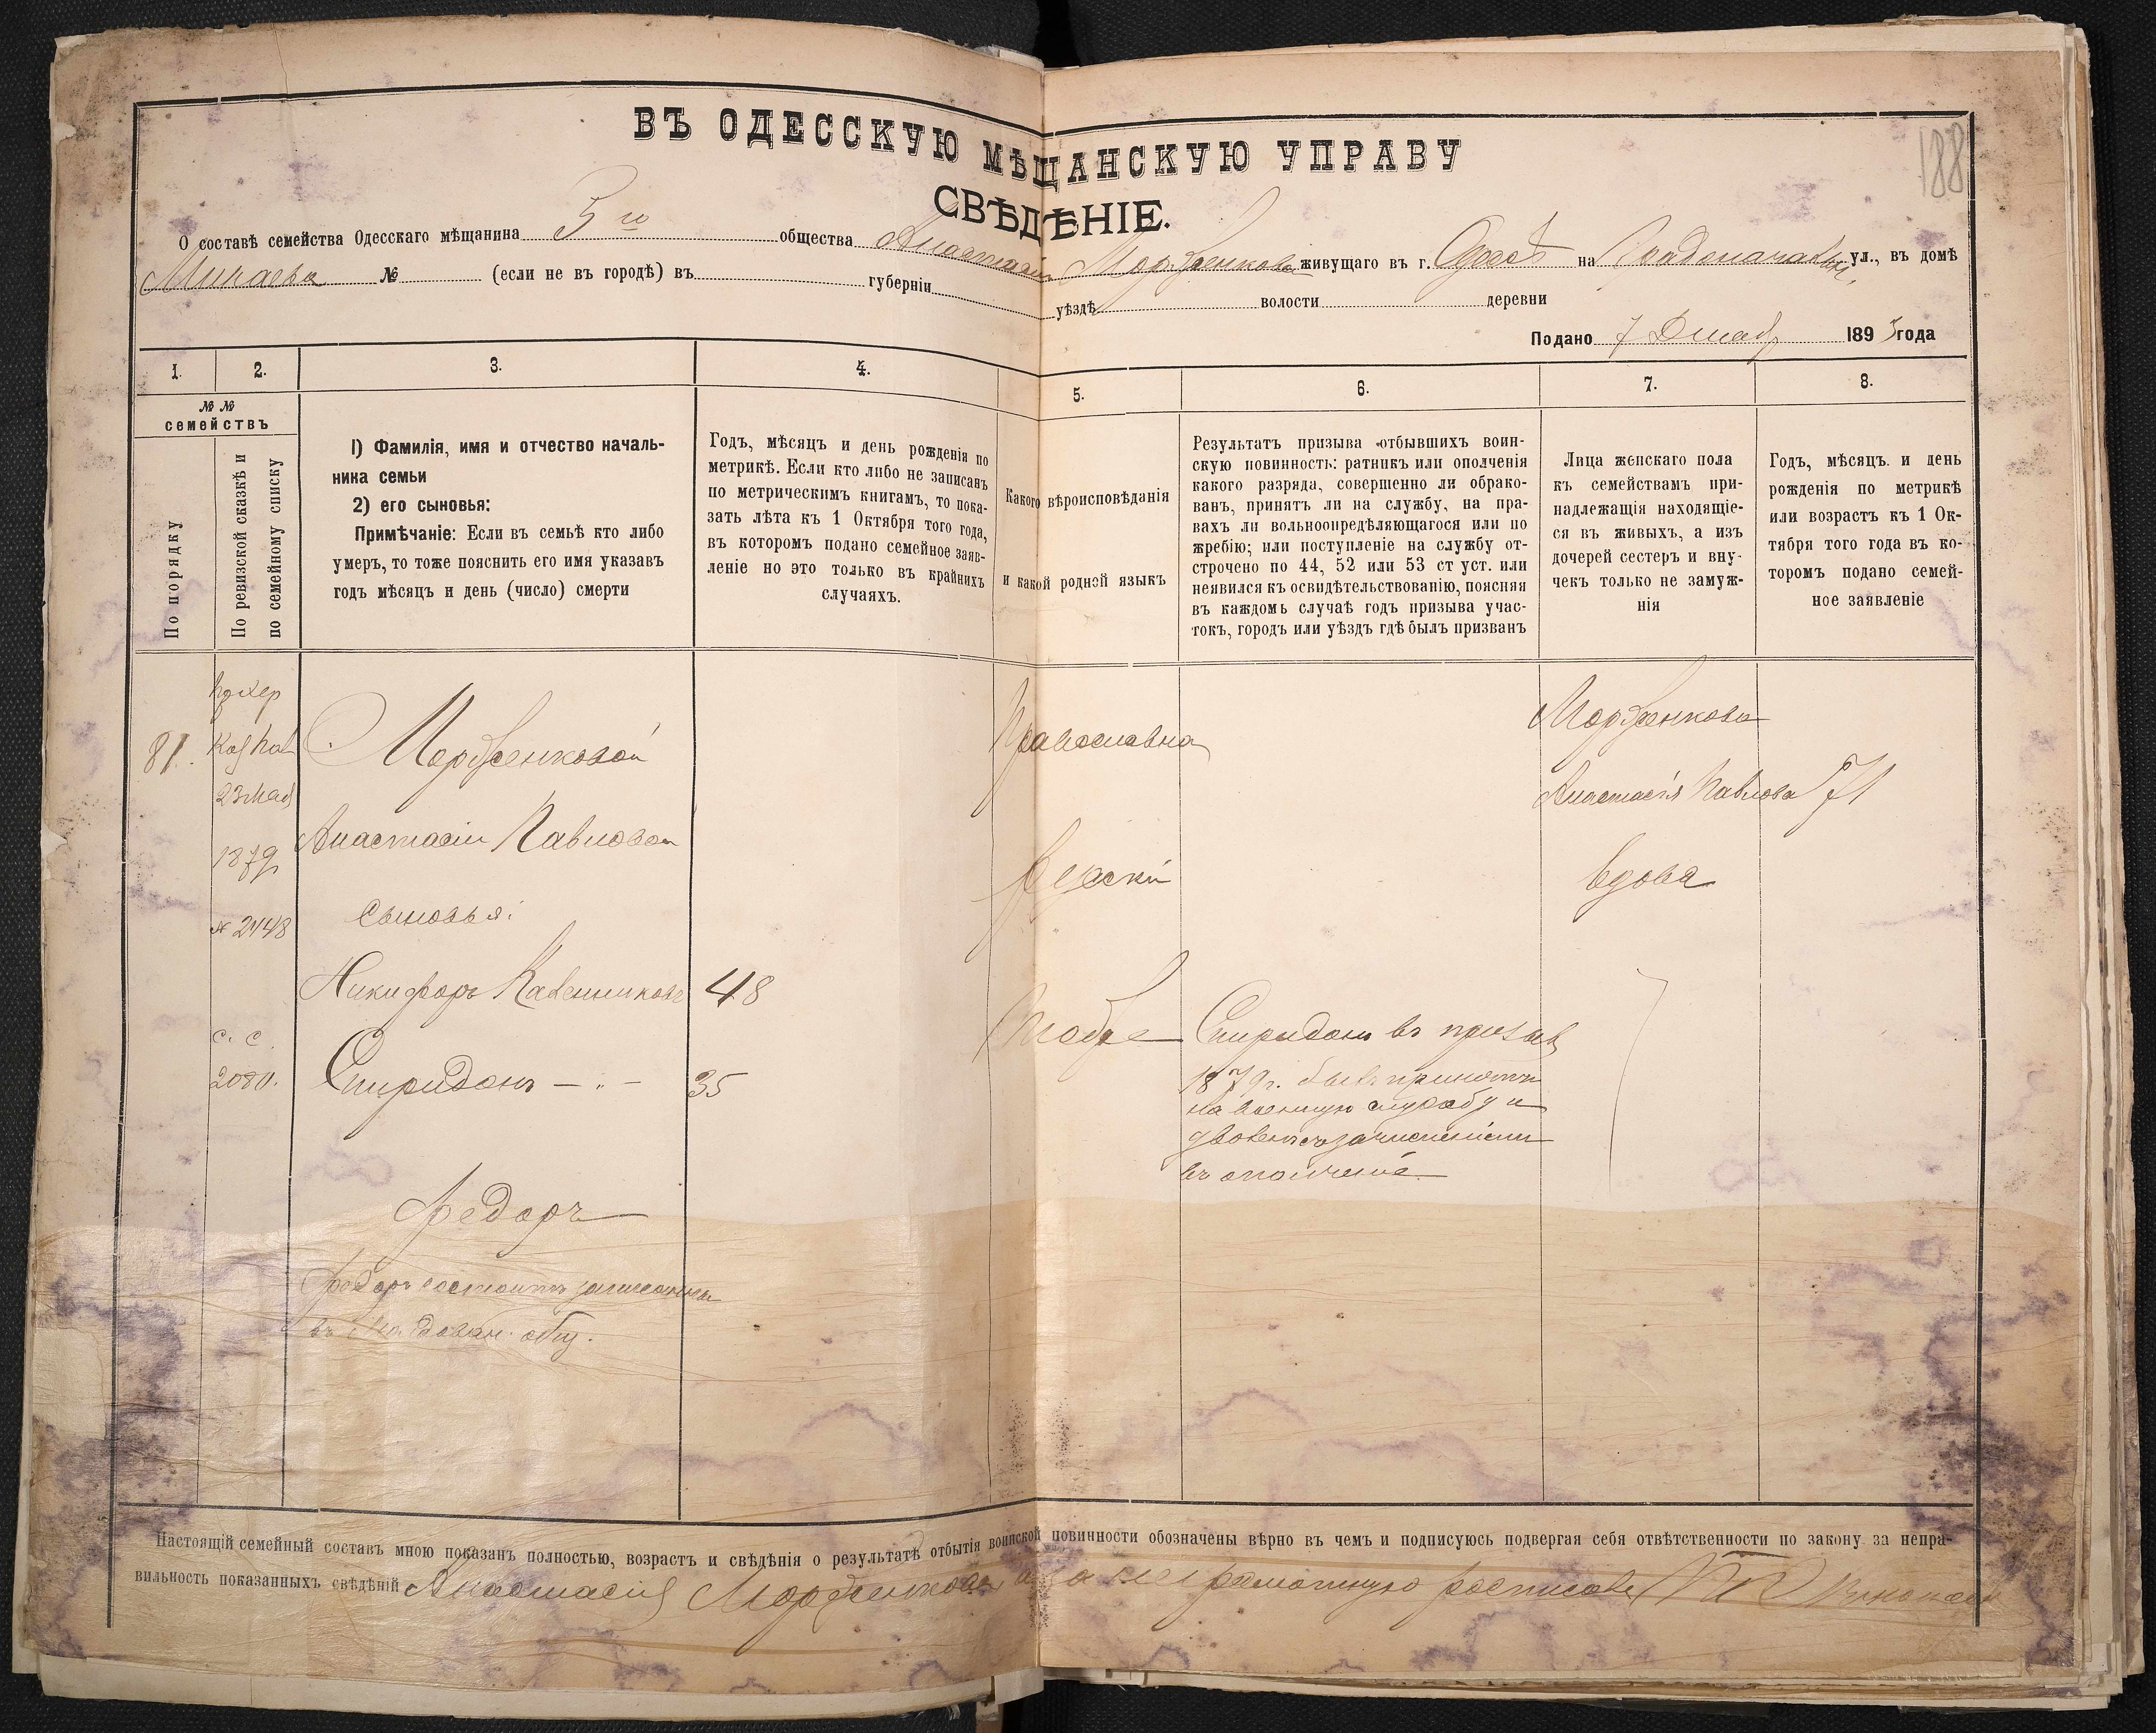 188
ВЪ ОДЕССКУЮ МѢЩАНСКУЮ УПРАВУ
СВѢДѢНІЕ.
О составѣ семейства Одесскаго мѣщанина 5го общества Анастасіи Мордженковой живущаго въ г. Одессѣ на ул., въ домѣ
№ (если не въ городѣ) въ губерніи уѣздѣ волости деревни
Подано 7 Декаб 1895 года
1. 2. 3. 4. 5. 6. 7. 8.
№ №
семействъ
По порядку
По ревизской сказкѣ и
по семейному списку
1) Фамилія, имя и отчество началь-
ника семьи
2) его сыновья:
Примѣчаніе: Если въ семьѣ кто либо
умеръ, то тоже пояснить его имя указавъ
годъ мѣсяцъ и день (число) смерти
Годъ, мѣсяцъ и день рожденія по
метрикѣ. Если кто либо не записанъ
по метрическимъ книгамъ, то пока-
зать лѣта къ 1 Октября того года,
въ которомъ подано семейное заяв-
леніе но это только въ крайнихъ
случаяхъ.
Какого вѣроисповѣданія
и какой родной языкъ
Результатъ призыва отбывшихъ воин-
скую повинность: ратникъ или ополченія
какого разряда, совершенно ли обрако-
ванъ, принятъ ли на службу, на пра-
вахъ ли вольноопредѣляющагося или по
жребію; или поступленіе на службу от-
строчено по 44, 52 или 53 ст уст. или
неявился къ освидѣтельствованію, поясняя
въ каждомъ случаѣ годъ призыва учас-
токъ, городъ или уѣздъ гдѣ былъ призванъ
Лица женскаго пола
къ семействамъ при-
надлежащія находящіе-
ся въ живыхъ, а изъ
дочерей сестеръ и вну-
чекъ только не замуж-
нія
Годъ, мѣсяцъ. и день
рожденія по метрикѣ
или возрастъ къ 1 Ок-
тября того года въ ко-
торомъ подано семей-
ное заявленіе
81.
1879
№ 2448
с. с.
2080.
Мордженковой
Анастасіи Павловой
Сыновья:
Никифоръ 48
Спиридонъ — " — 35
Федоръ
Федоръ состоитъ
въ Молдован. общ.
Православна
Русскій
Спиридонъ въ призывъ
1879г. былъ принятъ
на военную службу и
въ ополченіе
Мордженкова
Анастасія Павлова 71
вдова
Настоящій семейный составъ мною показанъ полностью, возрастъ и свѣдѣнія о результатѣ отбытія воинской повинности обозначены вѣрно въ чемъ и подписуюсь подвергая себя отвѣтственности по закону за непра-
вильность показанныхъ свѣдѣній Анастасія Мордженкова